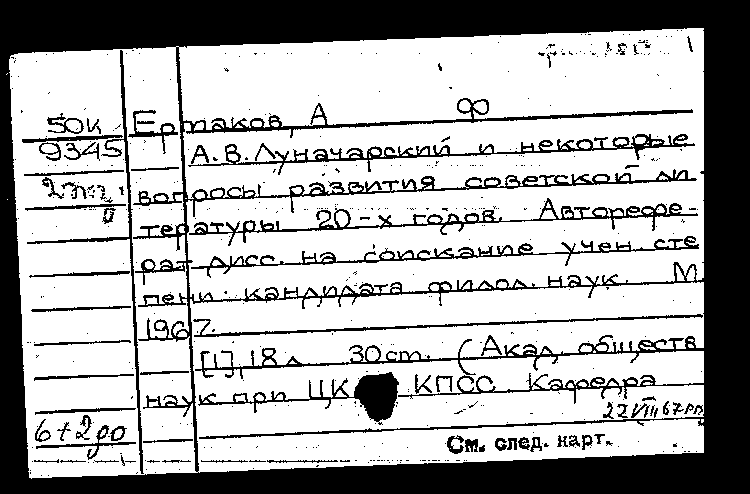 50к Ермаков, А Ф
9345 А.В. Луначарский и некоторые
вопросы развития советской ли-
тературы 20-х годов. Авторефе-
рат дисс. на соискание учен. сте
пени кандидата филол. наук. М.
1967.
[1], 18 л 30 ст. (Акад. обществ
наук при ЦК КПСС Кафедра
22 VIII 67
6+2до
См. след. карт.